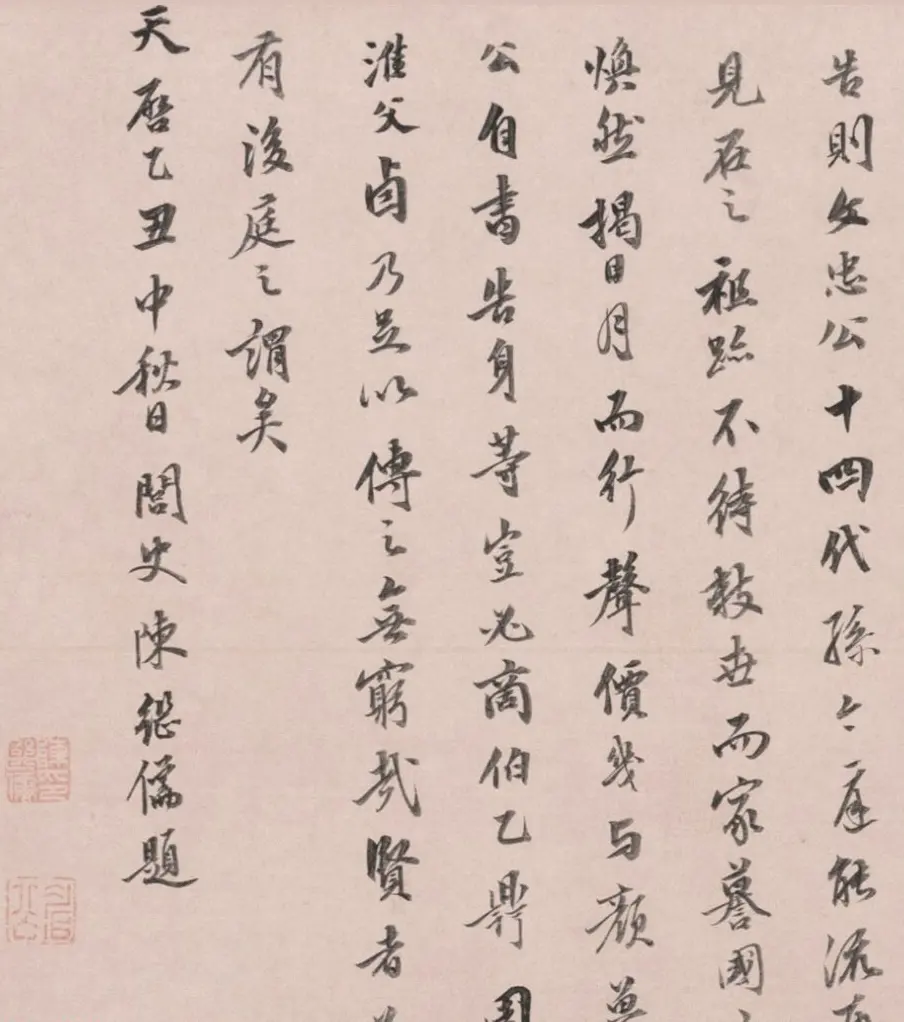 告則文忠公十四代孫令庭能流
見石之祖跡不待數世而家謩國
煥然揭日月而行聲價幾与顏
公自書告身等豈必商伯乙鼎周
淮父卣乃足以傳之無窮哉賢者
有後庭之謂矣
天啓乙丑中秋日閣史陳繼儒題